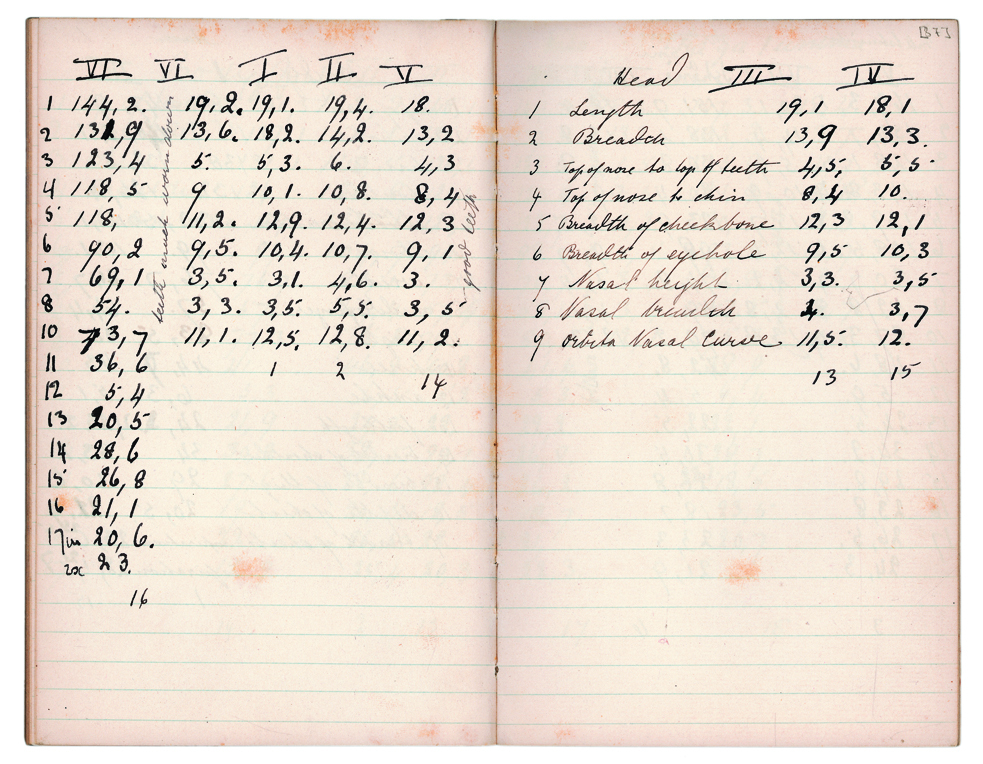 VI VI I II V
1 144,2. 19,2. 19,1. 19,4. 18.
2 131,9 13,6. 18,2. 14,2. 13,2
3 123,4 5. 5,3. 6. 4,3
4 118,5 9 10,1. 10,8. 8,4
5 118, 11,2. 12,9. 12,4. 12,3
6 90,2 9,5. 10,4. 10,7. 9,1
7 69,1 3,5. 3,1. 4,6. 3.
8 54. 3,3. 3,5. 5,5. 3,5
10 73,7 11,1. 12,5. 12,8. 11,2.
11 36,6 1 2 14
12 5,4
13 20,5
14 28,6
15 26,8
16 21,1
17 in 20,6.
23.
16
teeth much worn down
good teeth
[B7]
Head III IV
1 Length 19,1 18,1
2 Breadth 13,9 13,3.
3 Top of nose to top of teeth 4,5, 5,5
4 Top of nose to chin 8,4 10.
5 Breadth of cheekbone 12,3 12,1
6 Breadth of eyehole 9,5 10,3
7 Nasal height 3,3. 3,5
8 Nasal breadth 4. 3,7
9 orbito Nasal Curve 11,5. 12.
13 15